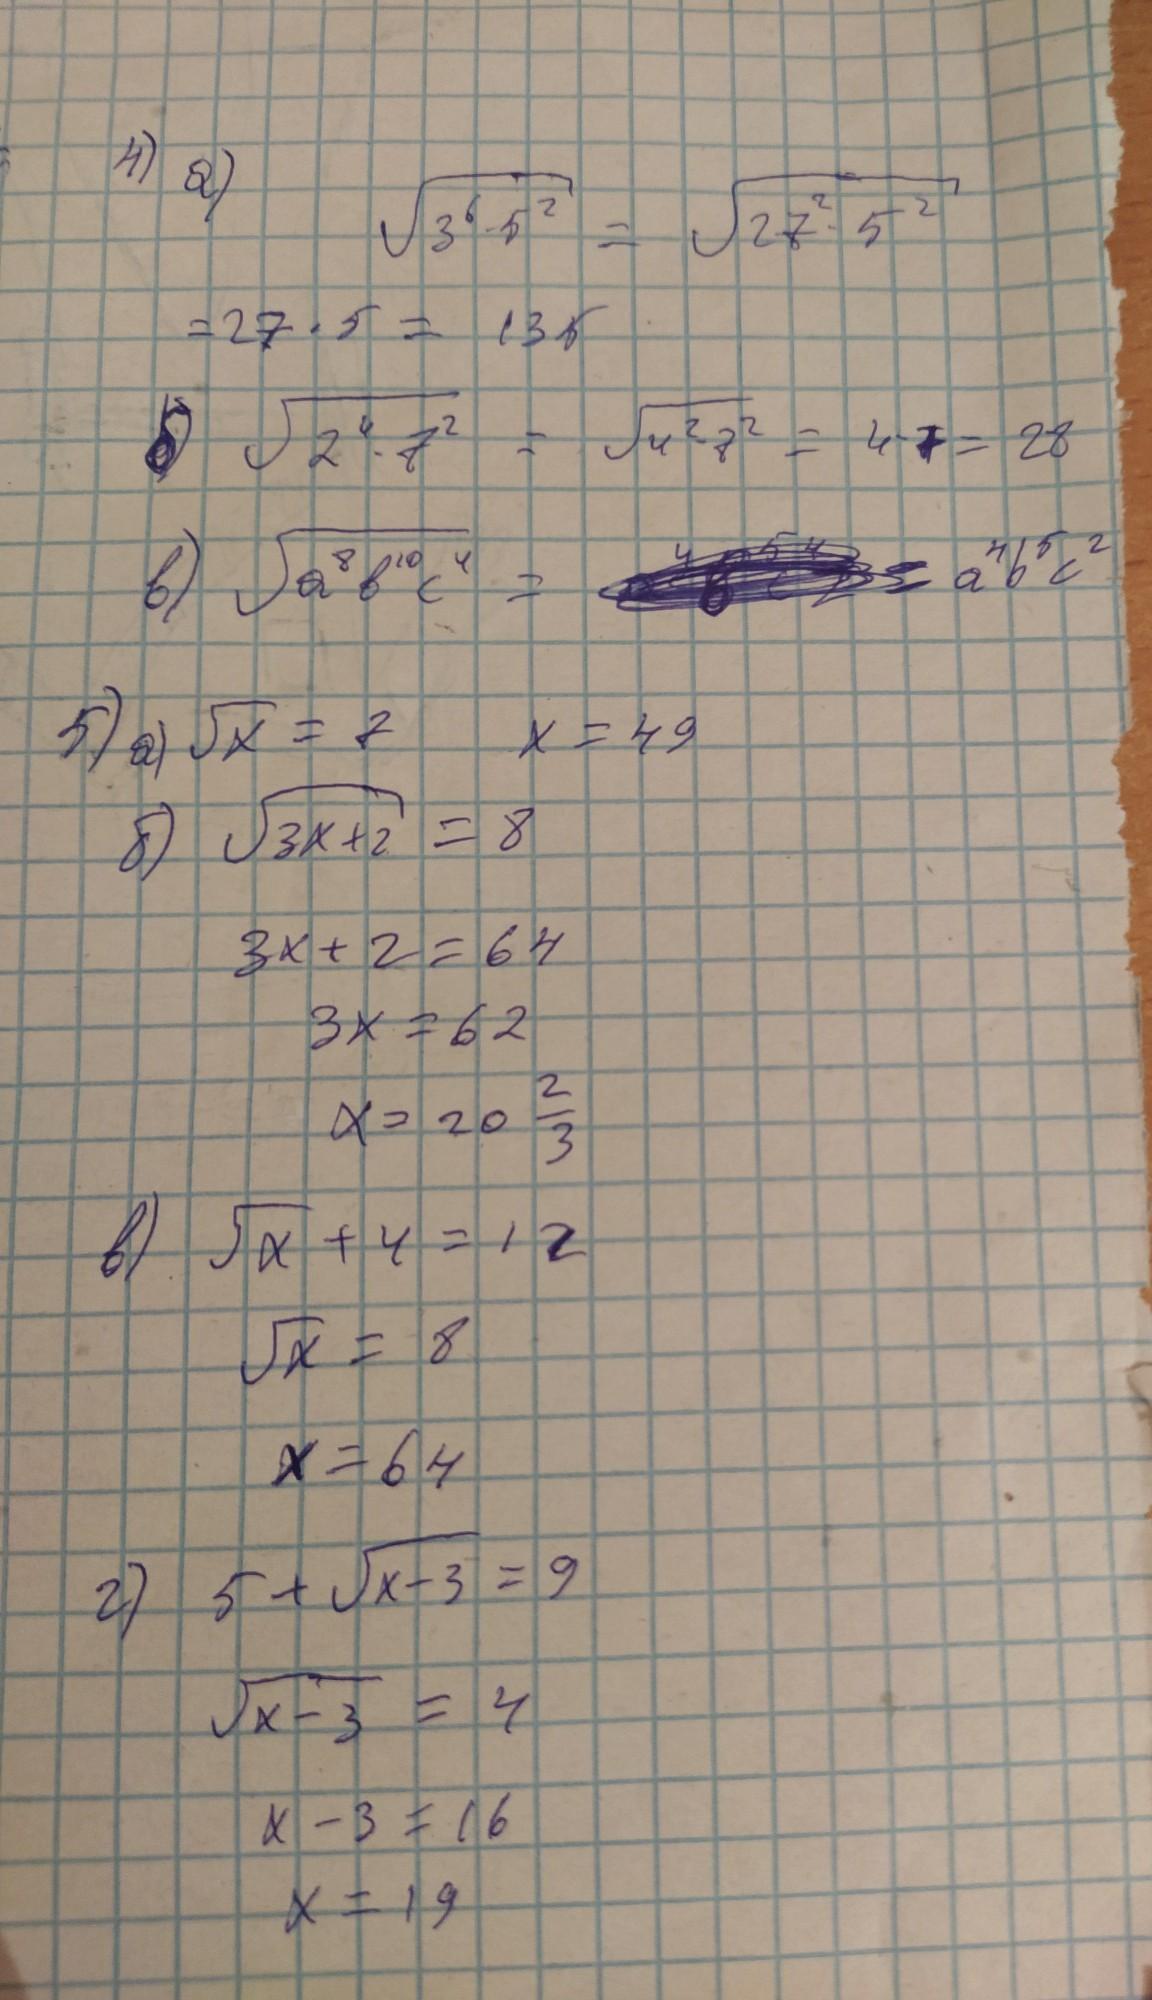 4) а) √(3⁶·5²) = √(27²·5²)
= 27·5 = 135
б) √(2⁴·7²) = √(4²·7²) = 4·7 = 28
в) √(a⁸b¹⁰c⁴) = a⁴b⁵c²
5) а) √x = 7 x = 49
б) √(3x+2) = 8
3x+2 = 64
3x = 62
x = 20 2/3
в) √x + 4 = 12
√x = 8
x = 64
г) 5 + √(x-3) = 9
√(x-3) = 4
x - 3 = 16
x = 19